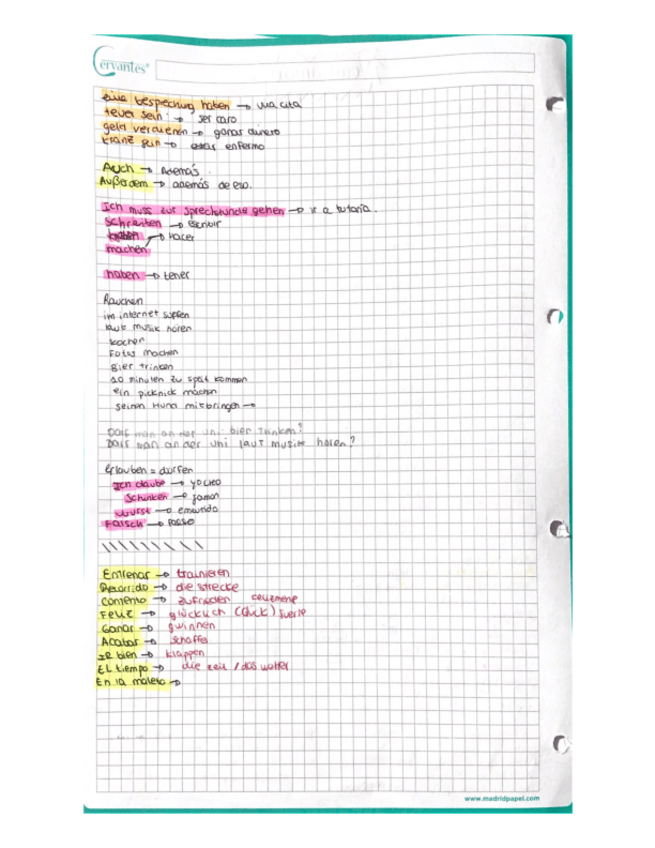 Cervantes®
eine bespreching haben → una cita
teuer sein: → ser caro
geld verdienen → ganar dinero
krank sein → estar enfermo
Auch → Además.
Außerdem → además de eso.
Ich muss zur sprechstunde gehen → ir a tutoria.
Schreiben → escribir
→ hacer
machen
haben → tener
Rauchen
im internet surfen
laut musik hören
kochen
Fotos machen
Bier trinken
20 minuten zu spät kommen
ein picknick machen
seinen Hund mitbringen →
Darf man an der Uni bier Trinken?
Darf man an der Uni laut musik hören?
Erlauben = dürfen
Ich glaube → yo creo
Schinken → jamon
wurst →
Falsch → falso
\ \ \ \ \ \ \ \ \
Entrenar → trainieren
Recorrido → die strecke
Contento → zufrieden
Feliz → glücklich (Glück) suerte
Ganar → gwinnen
Acabar → schaffe
ir bien → klappen
EL tiempo → die zeit / das
En la maleta →
www.madridpapel.com